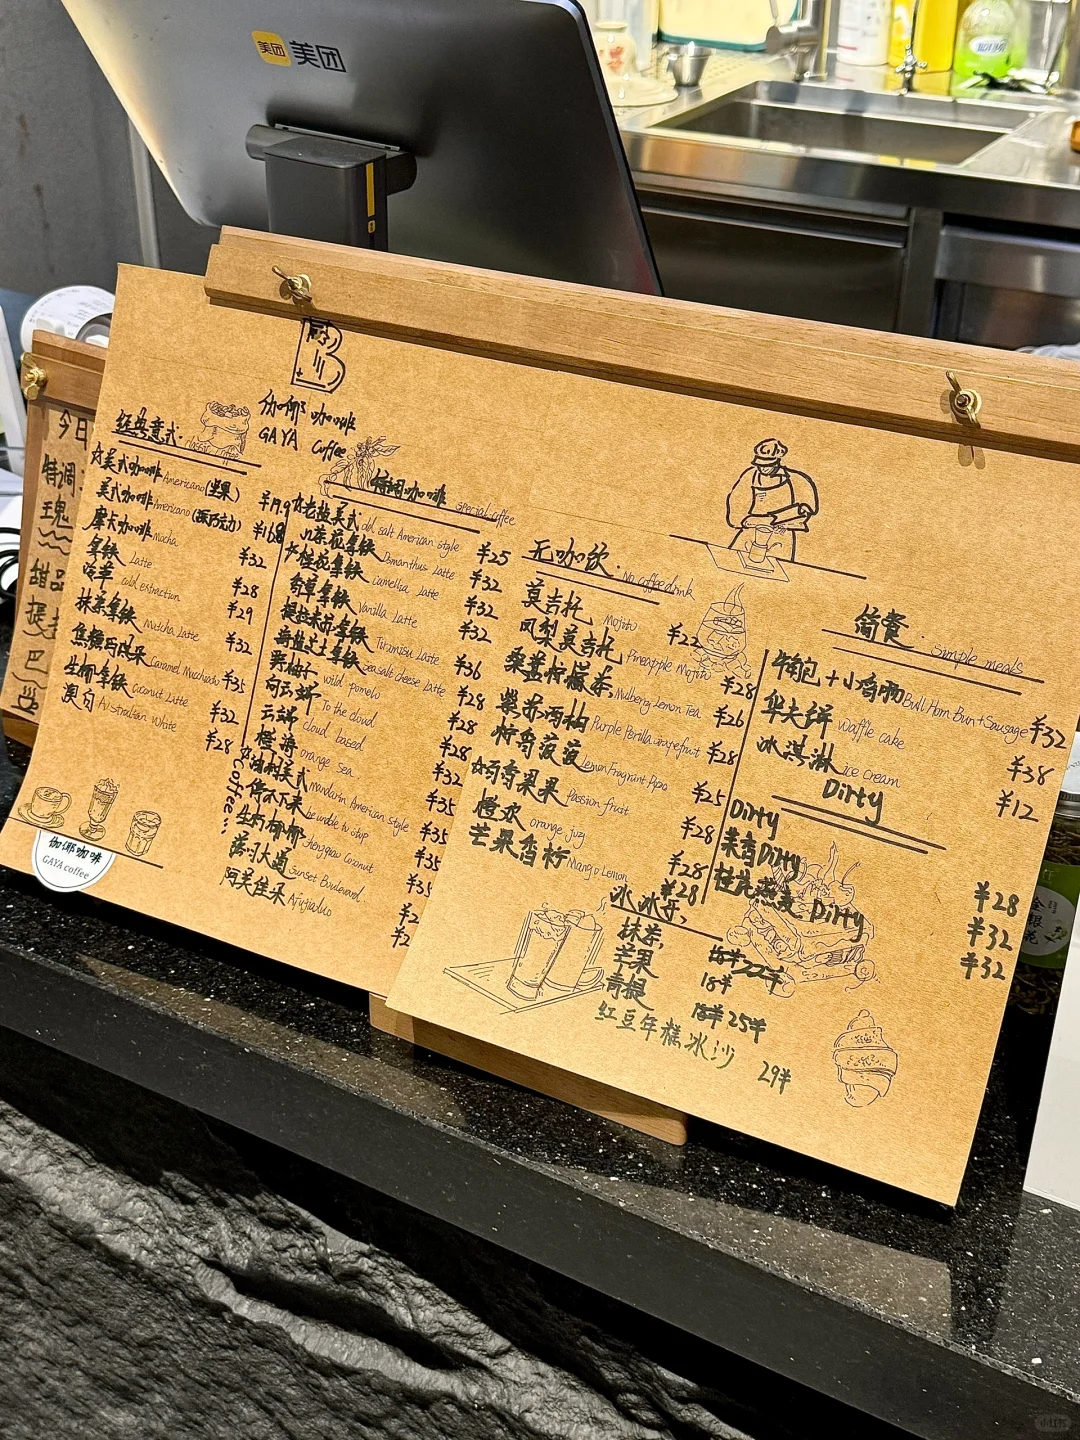 美团 美团
伽倻咖啡
GAYA Coffee
经典意式
classic
美式咖啡 Americano (坚果) ¥19.9
美式咖啡 Americano (深巧克力) ¥16.8
摩卡咖啡 Mocha ¥32
拿铁 Latte ¥28
冷萃 cold extraction ¥29
抹茶拿铁 Matcha Latte ¥32
焦糖玛奇朵 Caramel Macchiado ¥35
生椰拿铁 Coconut Latte ¥32
澳白 Australian White ¥28
Coffee...
特调咖啡 special coffee
老盐美式 old salt American style ¥25
茶花拿铁 Osmanthus Latte ¥32
桂花拿铁 Camellia Latte ¥32
香草拿铁 Vanilla Latte ¥32
提拉米苏拿铁 Tiramisu Latte ¥36
海盐芝士拿铁 sea salt cheese Latte ¥28
野柚子 wild pomelo ¥28
向云端 To the cloud ¥28
云端 cloud based ¥32
橙海 orange sea ¥35
油柑美式 mandarin American style ¥35
停不下来 be unable to stop ¥35
生打椰椰 Shengqiao Coconut
落日大道 Sunset Boulevard
阿芙佳朵
无咖饮 No coffee drink
莫吉托 Mojito ¥22
凤梨莫吉托 Pineapple Mojito ¥28
桑葚柠檬茶 Mulberry Lemon Tea ¥26
紫苏西柚 Purple Perilla Grapefruit ¥28
柠香菠菠 Lemon Fragrant Pipa ¥25
百香果果 Passion fruit ¥28
橙欢 orange juzy ¥28
芒果香柠 Mango Lemon ¥28
冰冰乐
抹茶
芒果 18半
青提 25半
红豆年糕冰沙 29半
简餐 Simple meals
牛角包+小香肠 Bull Horn Bun+Sausage ¥32
华夫饼 Waffle cake ¥38
冰淇淋 ice cream ¥12
Dirty
Dirty ¥28
茉香Dirty ¥32
桂花燕麦 Dirty ¥32
今日
特调
瑰
甜品
提
巴
伽倻咖啡
GAYA coffee
金银花